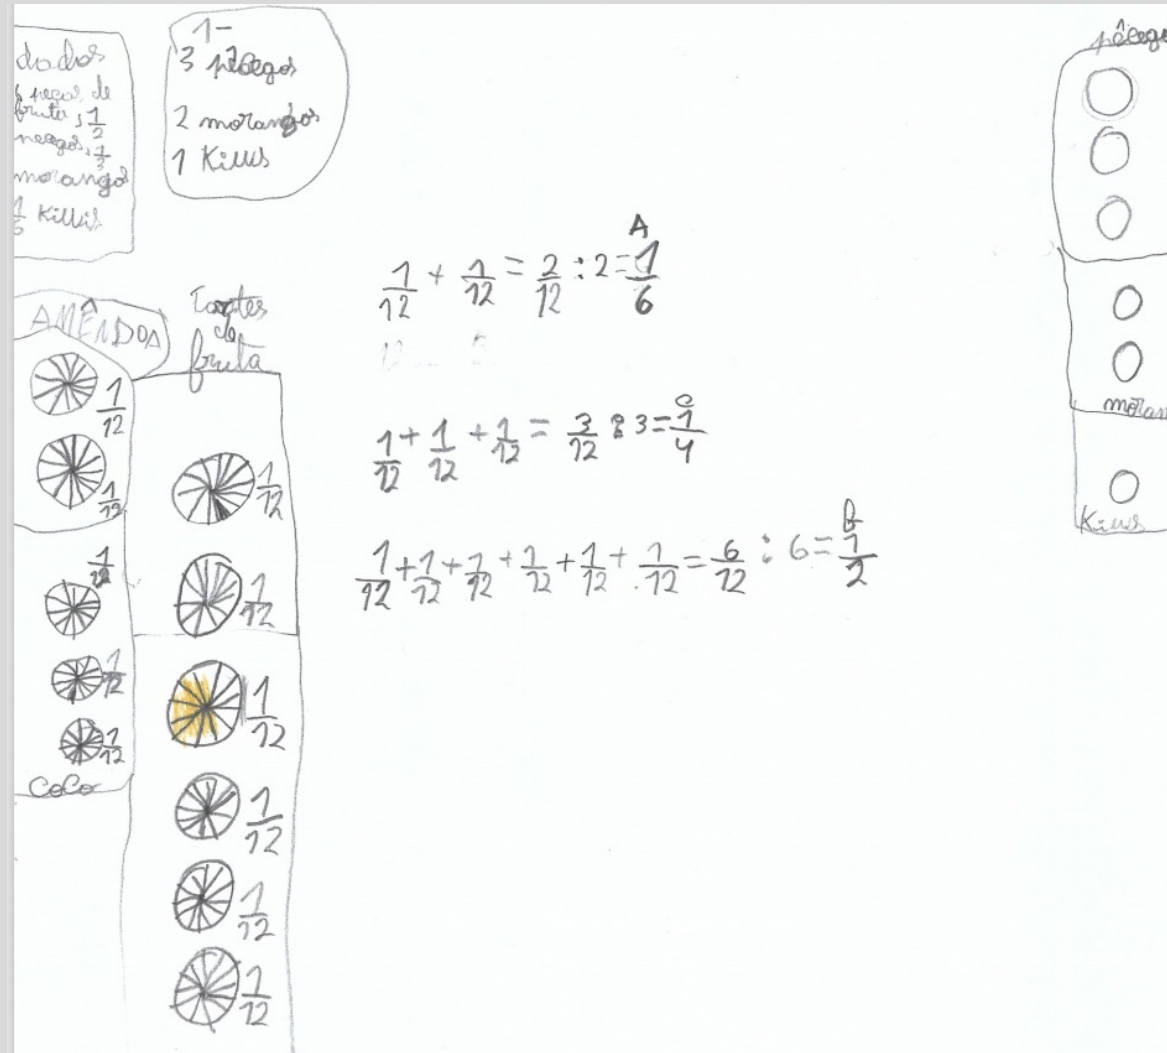 dados
peças de
fruta, 1/2
1/3
morangos
Kiwis
1-
3 pêcegos
2 morangos
1 Kiwis
AMÊNDOA
1/12
1/12
1/12
1/12
1/12
CoCo
Tartes
de
fruta
1/12
1/12
1/12
1/12
1/12
1/12
A
1/12 + 1/12 = 2/12 : 2 = 1/6
C
1/12 + 1/12 + 1/12 = 3/12 : 3 = 1/4
1/12 + 1/12 + 1/12 + 1/12 + 1/12 + 1/12 = 6/12 : 6 = 1/2
pêcego
moran
Kiwis